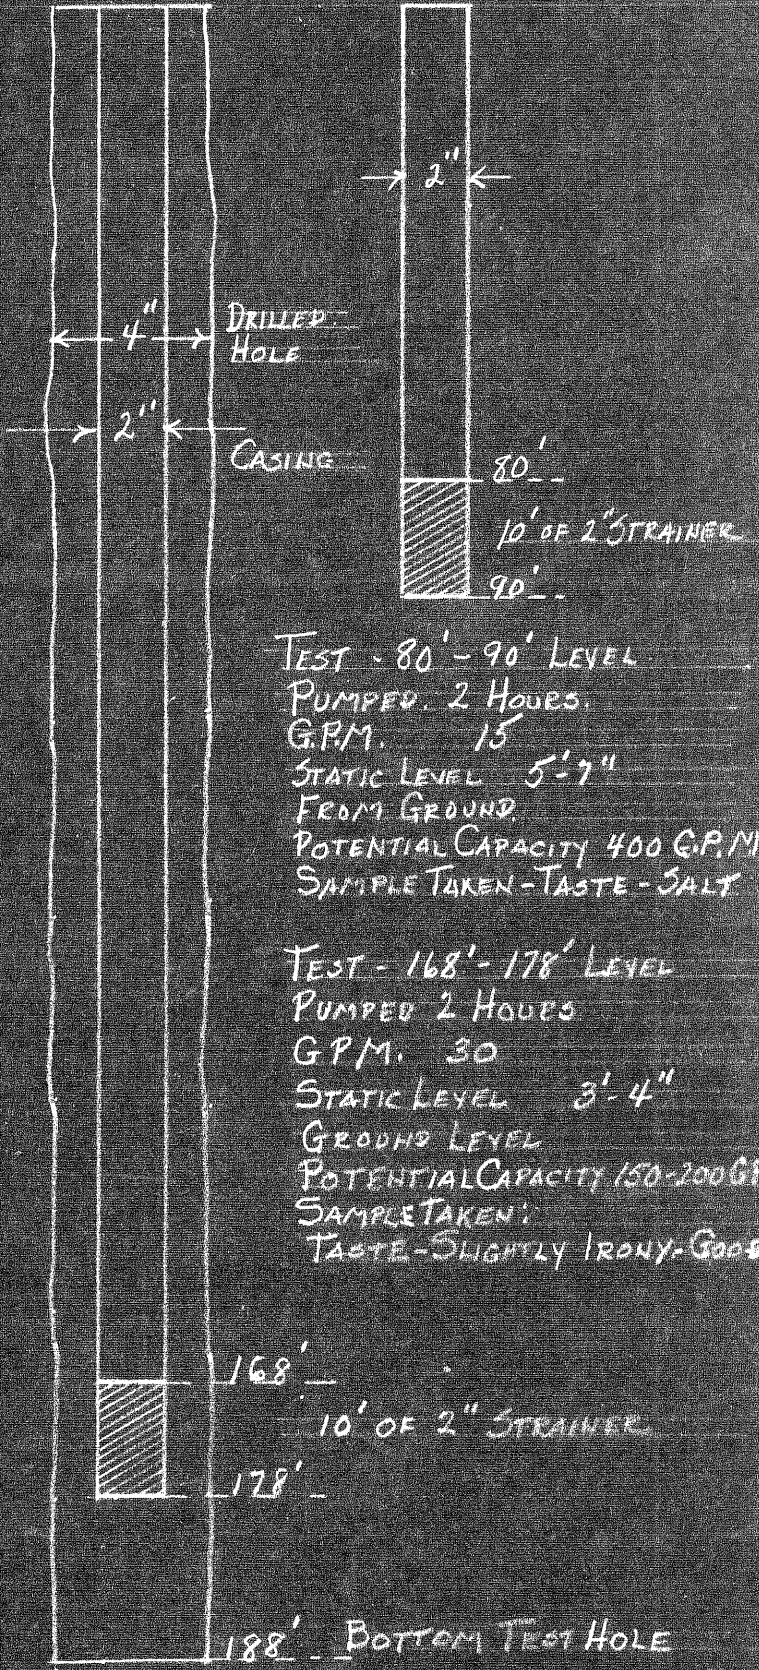 2"
4"
DRILLED
HOLE
2"
CASING
80'
10' OF 2" STRAINER
90'
TEST - 80'-90' LEVEL
PUMPED. 2 HOURS.
G.P.M. 15
STATIC LEVEL 5'-7"
FROM GROUND.
POTENTIAL CAPACITY 400 G.P.M
SAMPLE TAKEN-TASTE-SALT
TEST - 168'-178' LEVEL
PUMPED 2 HOURS
GPM. 30
STATIC LEVEL 3'-4"
GROUND LEVEL
POTENTIAL CAPACITY 150-200 GP
SAMPLE TAKEN:
TASTE-SLIGHTLY IRONY-GOOD
168'
10' OF 2" STRAINER
178'
188' BOTTOM TEST HOLE